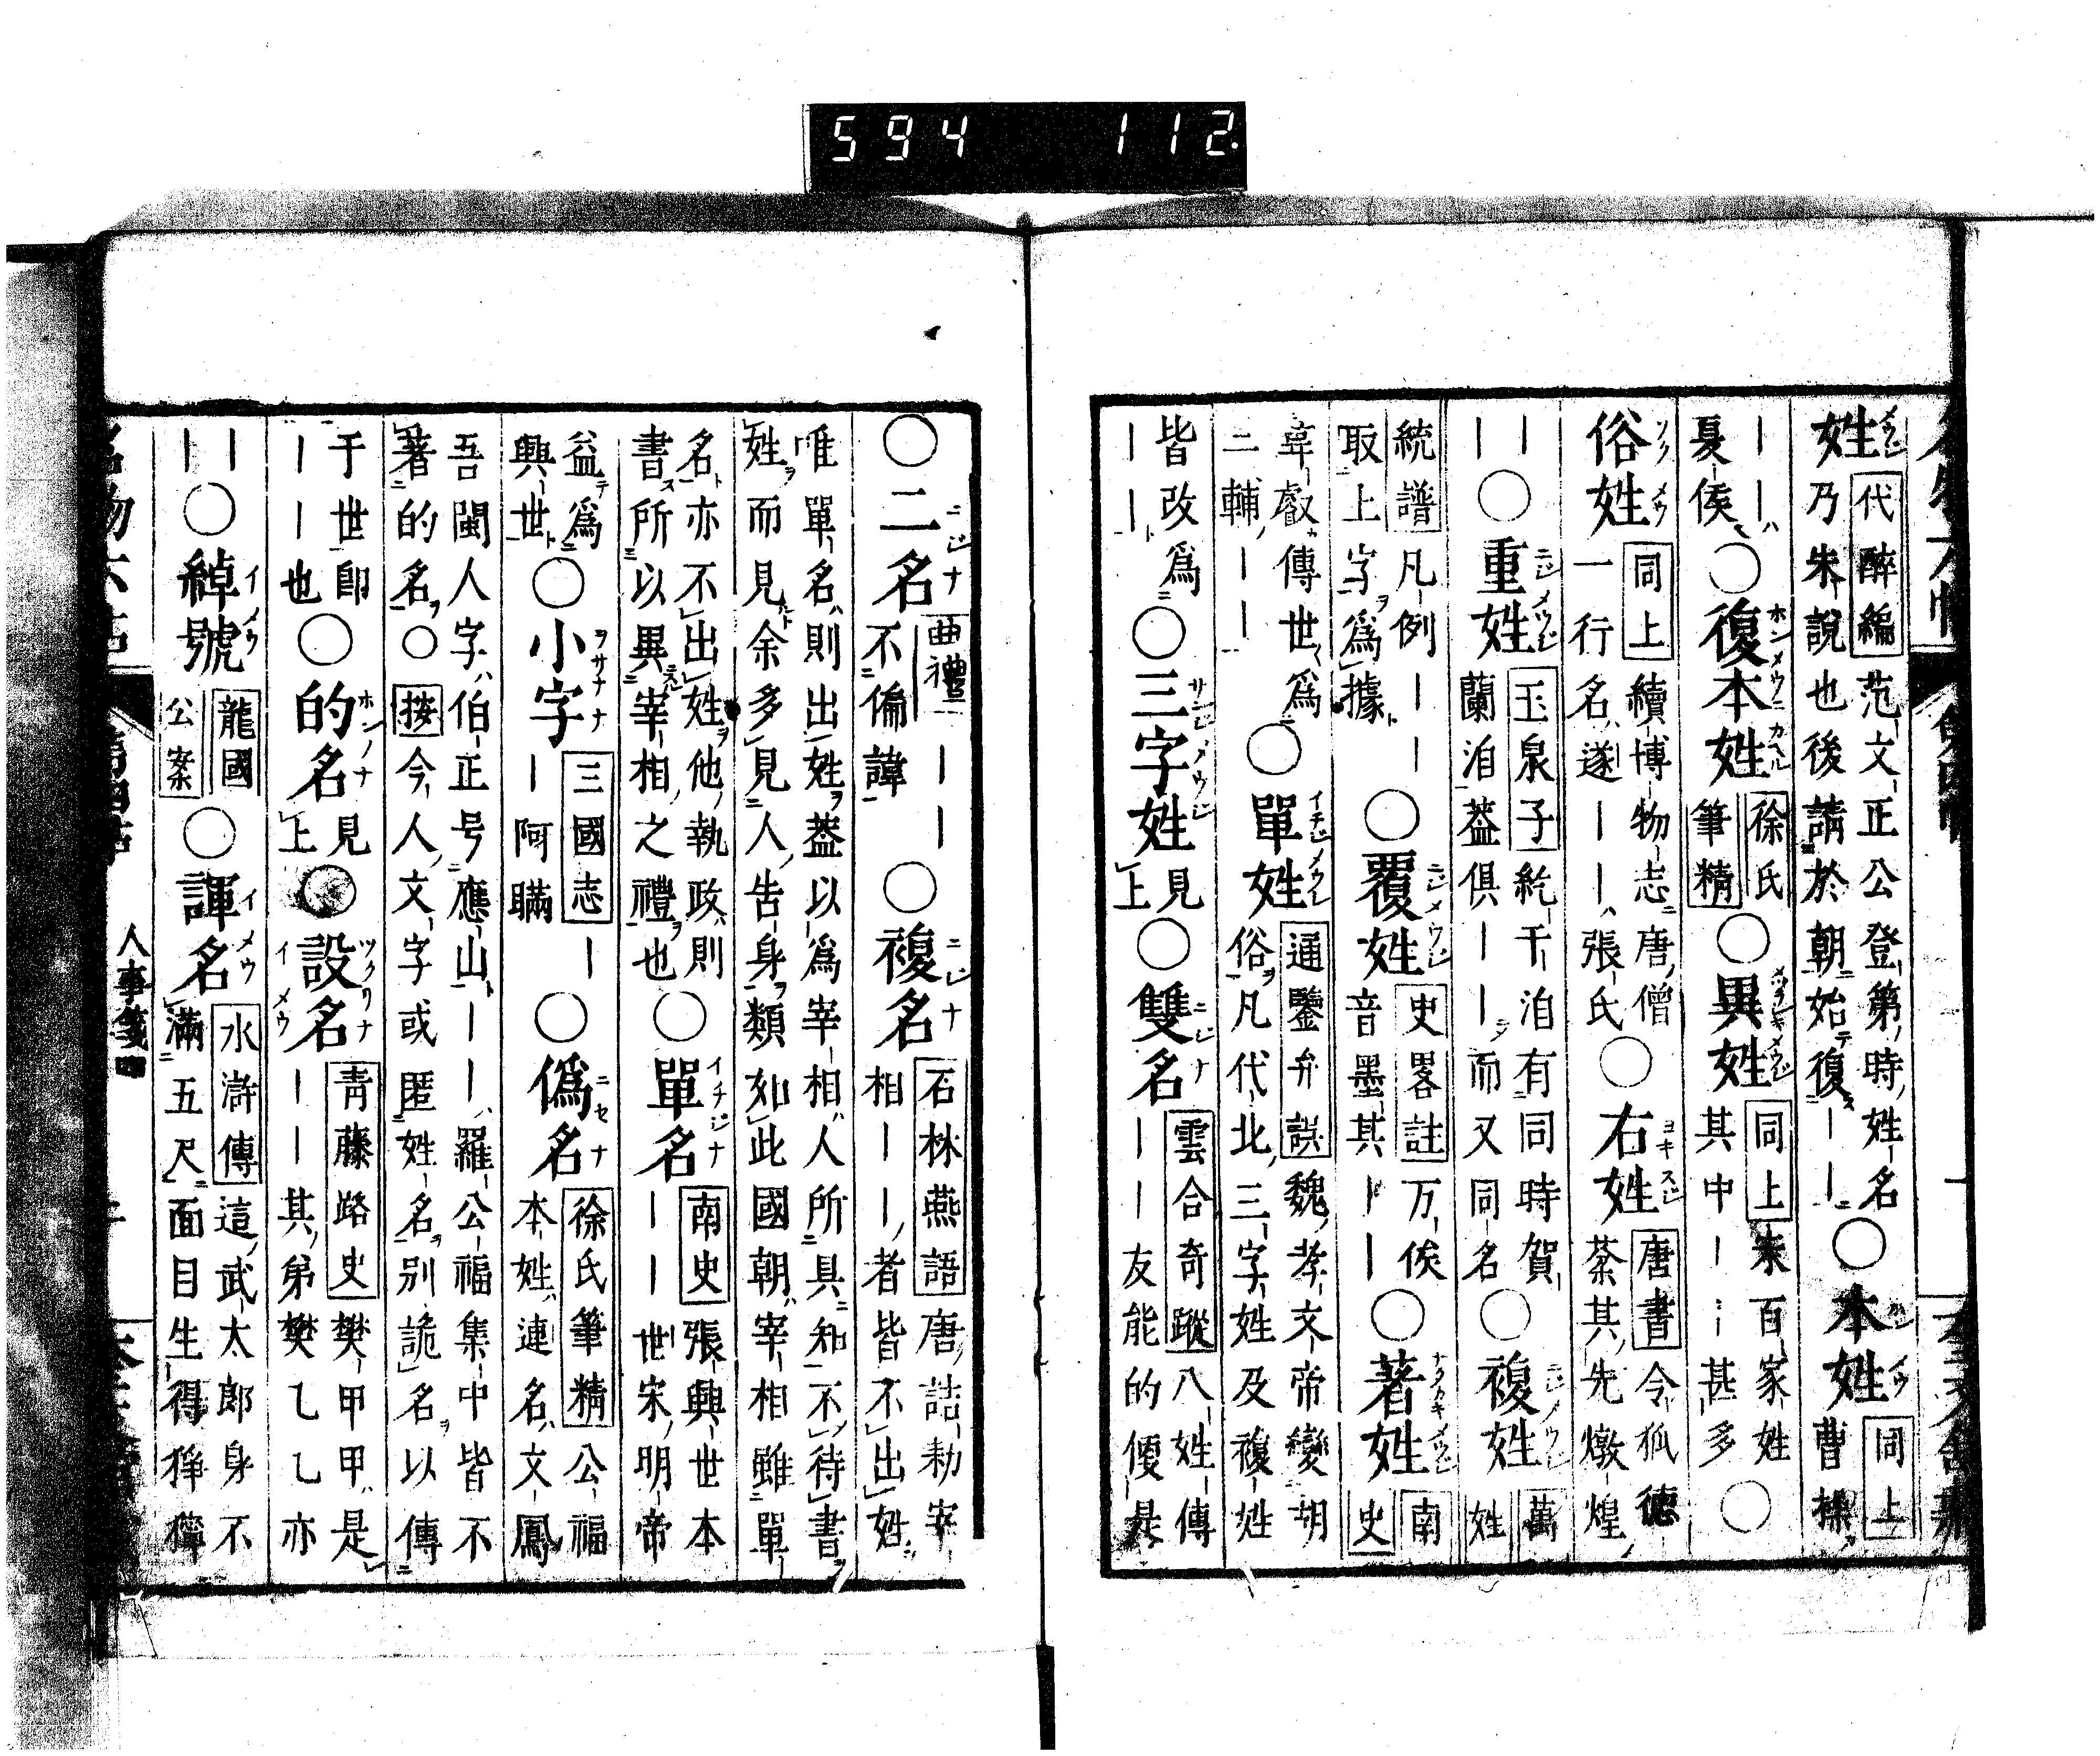 姓代醉編范文正公登第時姓名乃朱說也後請於朝始復――○本姓同上曹操
――夏侯○復本姓徐氏筆精○異姓同上朱百家姓其中――甚多○
俗姓同上續博物志唐僧一行名遂――張氏○右姓唐書令狐德棻其先燉煌
――○重姓玉泉子紇干洎有同時賀蘭洎葢俱――而又同名○複姓萬姓
統譜凡例――取上字爲據○覆姓史畧註万俟音墨其――○著姓南史
韋叡傳世爲二輔――○單姓通鑒弁誤魏孝文帝變胡俗凡代北三字姓及複姓
皆改爲――○三字姓見上○雙名雲合奇蹤八姓傳―――友能的便是
○二名曲禮――不偏諱○複名石林燕語唐誥勅宰相――者皆不出姓
唯單名則出姓葢以爲宰相人所具知不待書姓而見余多見人告身類如此國朝宰相雖單
名亦不出姓他執政則書所以異宰相之禮也○單名南史張興世本――世宋明帝
益爲興世○小字三國志――阿瞞○偽名徐氏筆精公福本姓連名文鳳
吾閩人字伯正号應山――羅公福集中皆不著的名○按今人文字或匿姓名別詭名以傳
于世卽―――也○的名見上○設名青藤路史樊甲甲是―――其弟樊乙乙亦
――○綽號龍國公案○諢名水滸傳這武大郎身不滿五尺面目生得猙獰
名物六帖 第四帖 人事箋四